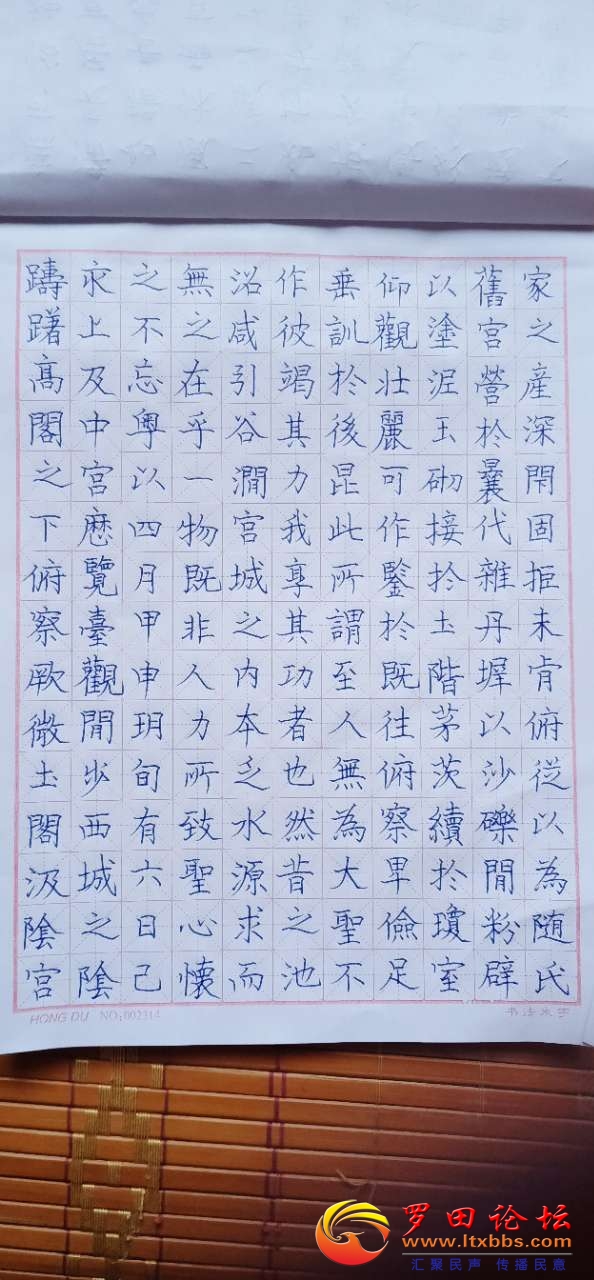 家之産深閇固拒未肯俯從以為隨氏
舊宮營於曩代雜丹墀以沙礫閒粉辟
以塗泥玉砌接於土階茅茨續於瓊室
仰觀壯麗可作鑒於既往俯察卑儉足
垂訓於後昆此所謂至人無為大聖不
作彼竭其力我享其功者也然昔之池
沼咸引谷澗宮城之内本乏水源求而
無之在乎一物既非人力所致聖心懷
之不忘粵以四月甲申玥旬有六日己
亥上及中宮歷覽臺觀閒步西城之陰
躊躇高閣之下俯察厥微土閣汲陰宮
HONG DU NO:002314
罗田论坛
www.ltxbbs.com
汇聚民声 传播民意